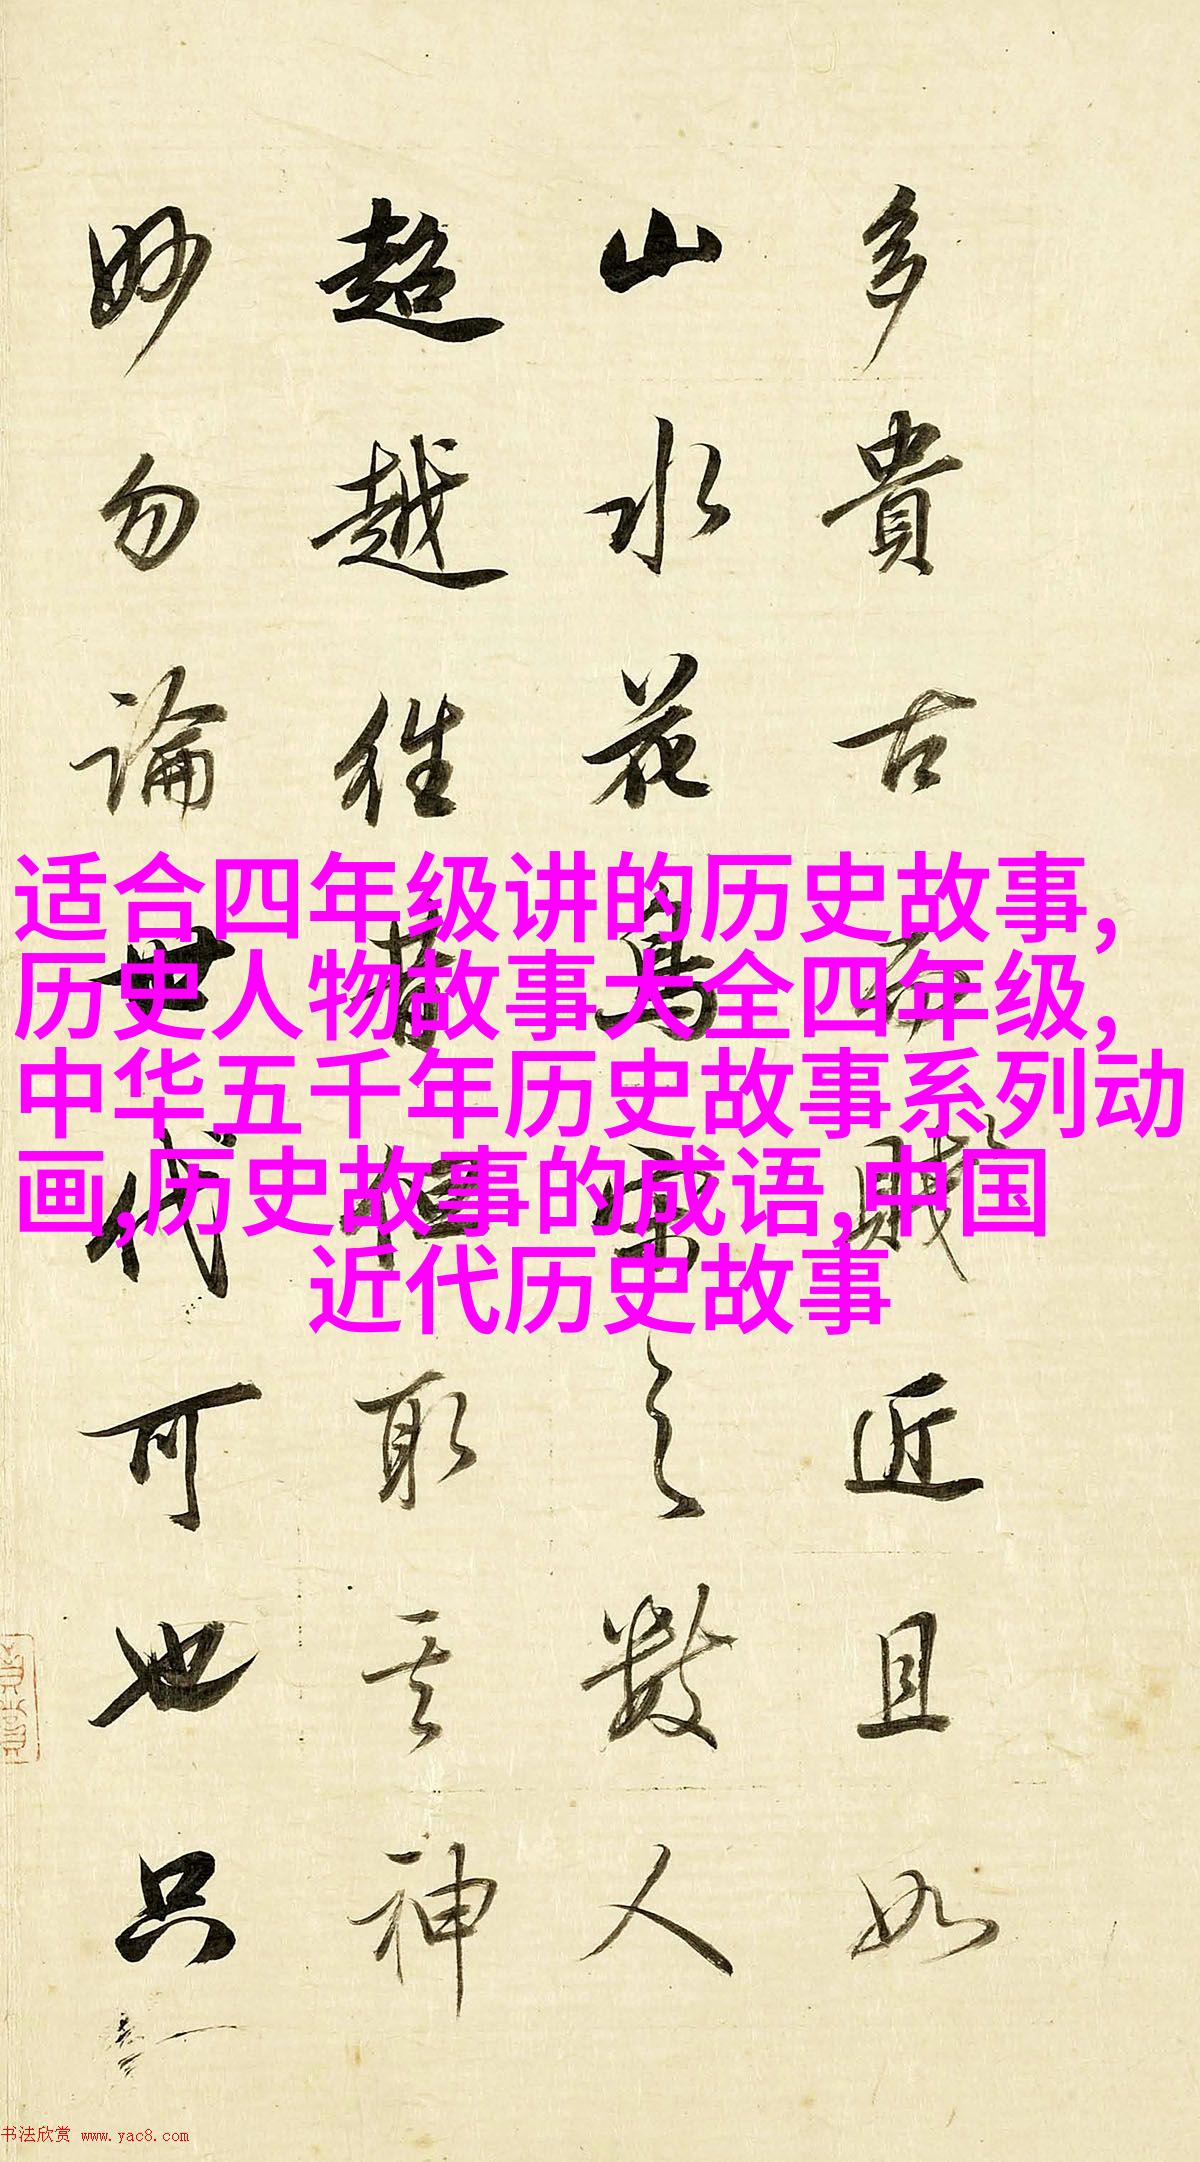 多貴古而賤近且如
山水花鳥之數人
超越往昔取其神
妙勿論世代可也只
适合四年级讲的历史故事,
历史人物故事大全四年级,
中华五千年历史故事系列动
画,历史故事的成语,中国
近代历史故事
书法欣赏 www.yac8.com